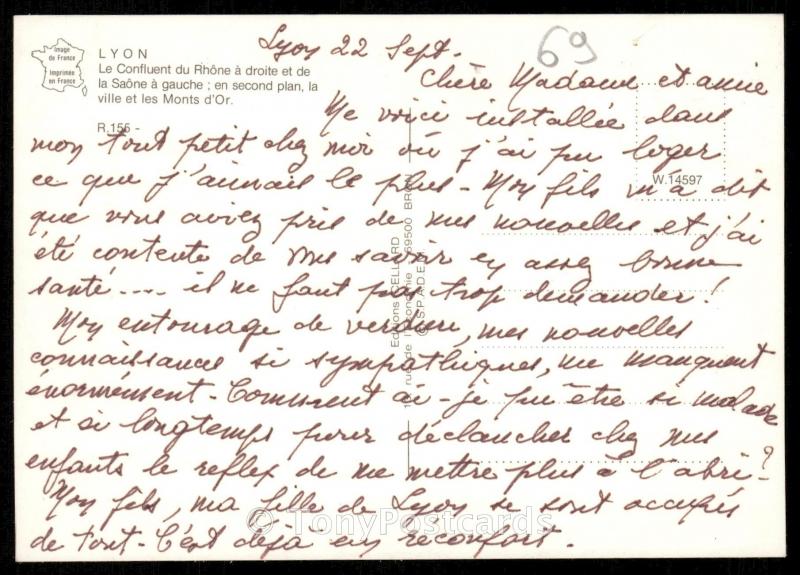 Image
de France
Imprimée
en France
LYON
Le Confluent du Rhône à droite et de
la Saône à gauche ; en second plan, la
ville et les Monts d'Or.
R.155 -
69
W.14597
Lyon 22 Sept.
Chère Madame et amie
Me voici installée dans
mon tout petit chez moi où j'ai pu loger
ce que j'aimais le plus - Mon fils m'a dit
que vous aviez pris de mes nouvelles et j'ai
été contente de vous savoir en assez bonne
santé.... il ne faut pas trop demander !
Mon entourage de verdure, mes nouvelles
connaissances si sympathiques, me manquent
énormément - Comment ai-je pu être si malade
et si longtemps pour déclancher chez mes
enfants le reflex de me mettre plus à l'abri ?
Mon fils, ma fille de Lyon se sont occupés
de tout - C'est déjà en reconfort.
Editions CELLARD
69500 BRON
© TonyPostcards